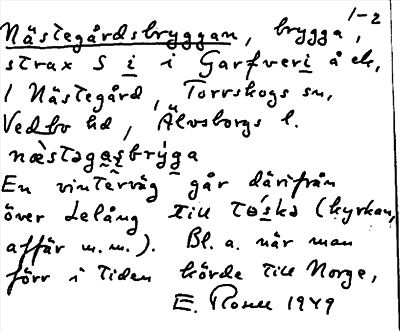 1-2
Nästegårdsbryggan, brygga,
strax S i i Garfveri å ek,
1 Nästegård, Torrskogs sn,
Vedbo hd, Älvsborgs l.
næ̀stəgaṣbrýga
En vinterväg går därifrån
över Lelång till Töskə (kyrkan,
affär m.m.). Bl. a. när man
förr i tiden körde till Norge,
E. 1949